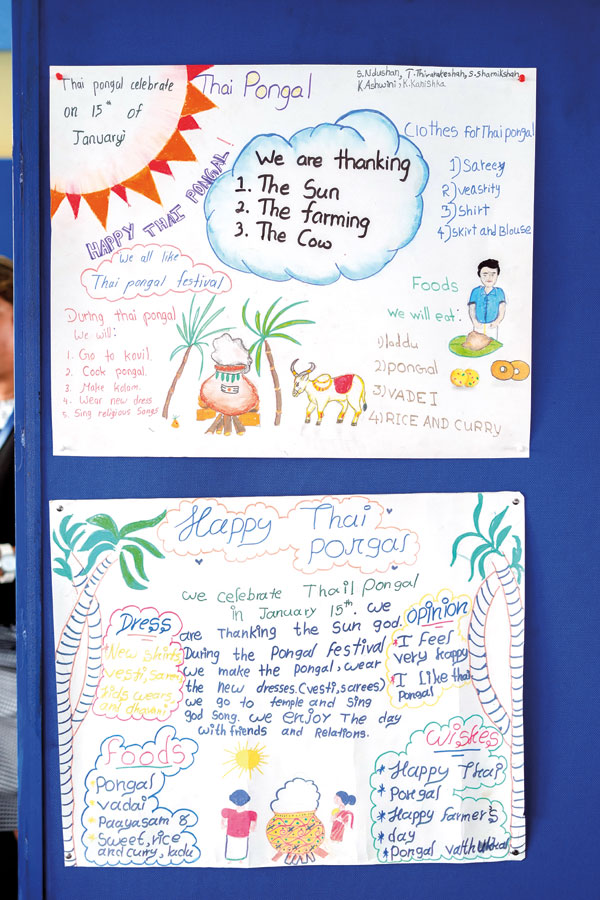 Thai pongal celebrate
on 15th of
January
Thai Pongal
S.Ndushan, T.Thirarakeshah, S.Shamikshah
K.Ashwini, K.Kanishka
HAPPY THAI PONGAL!
We are thanking
1. The Sun
2. The farming
3. The Cow
Clothes for Thai pongal
1) Sareey
2) veasrity
3) Shirt
4) Skirt and Blouse
We all like
Thai pongal festival
During thai pongal
We will:
1. Go to kovil.
2. Cook pongal.
3. Make kolam.
4. Wear new dress
5. Sing religious songs
Foods
We will eat:
1) laddu
2) pongal
3) VADEI
4) RICE AND CURRY
Happy Thai
pongal
we celebrate Thail Pongal
in January 15th. we
are Thanking the sun god.
During the Pongal Festival
we make the pongal, wear
the new dresses. (vesti, sarees)
we go to temple and sing
god song. we enjoy The day
with friends and Relations.
Dress
*New shirts
vesti, saree
kids wears,
and dhavani
opinion
*I Feel
very happy
*I Like thai
pongal
Foods
*Pongal
*vadai
*Paayasam &
*Sweet, rice
and curry, ladu
wishes
*Happy Thai
*Pongal
*Happy farmer's
*day
*Pongal